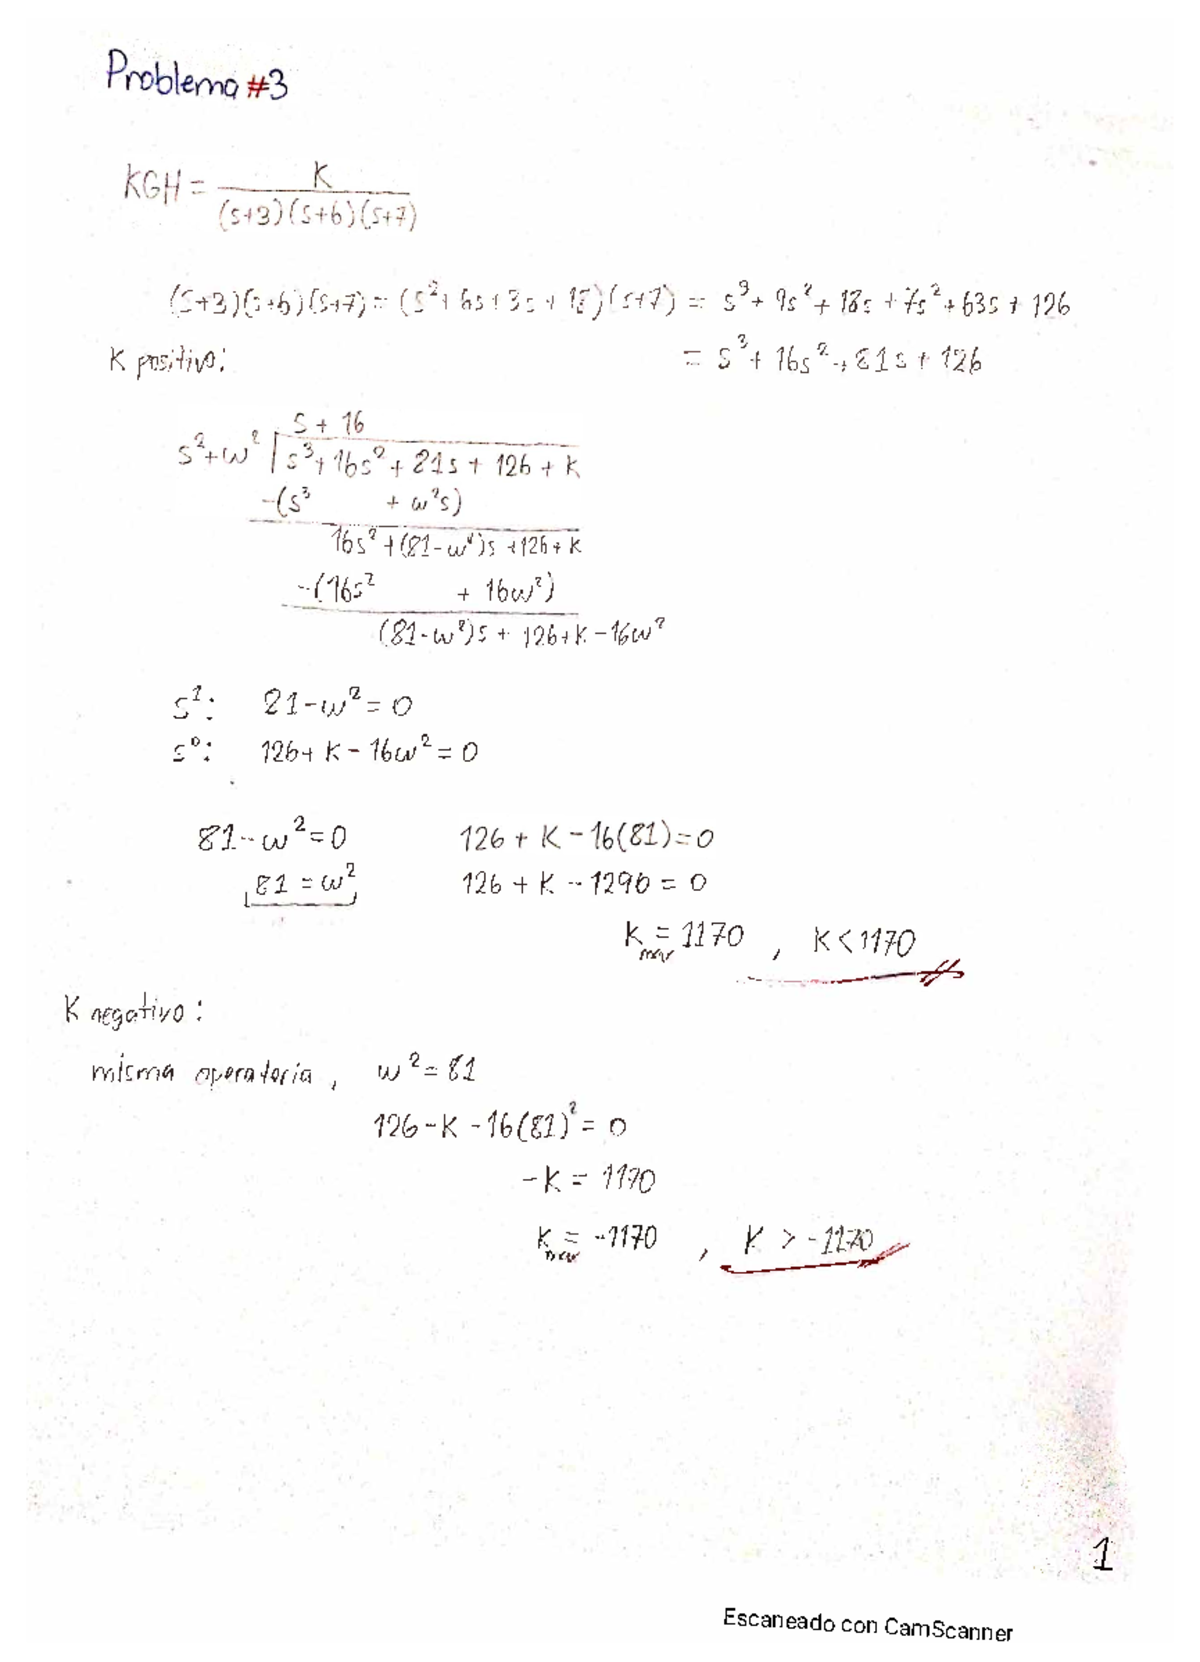 Problema #3
KGH = K / (s+3)(s+6)(s+7)
(s+3)(s+6)(s+7) = (s²+6s+3s+18)(s+7) = s³+9s²+18s+7s²+63s+126
K positivo:
= s³+16s²+81s+126
s+16
s²+w² | s³+16s²+81s+126+K
-(s³ + w²s)
16s²+(81-w²)s+126+K
-(16s² + 16w²)
(81-w²)s+126+K-16w²
s¹: 81-w²=0
s⁰: 126+K-16w²=0
81-w²=0 126+K-16(81)=0
81=w² 126+K-1296=0
K = 1170 , K<1170
K negativo:
misma operatoria, w²=81
126-K-16(81)²=0
-K = 1170
K = -1170 , K > -1170
1
Escaneado con CamScanner